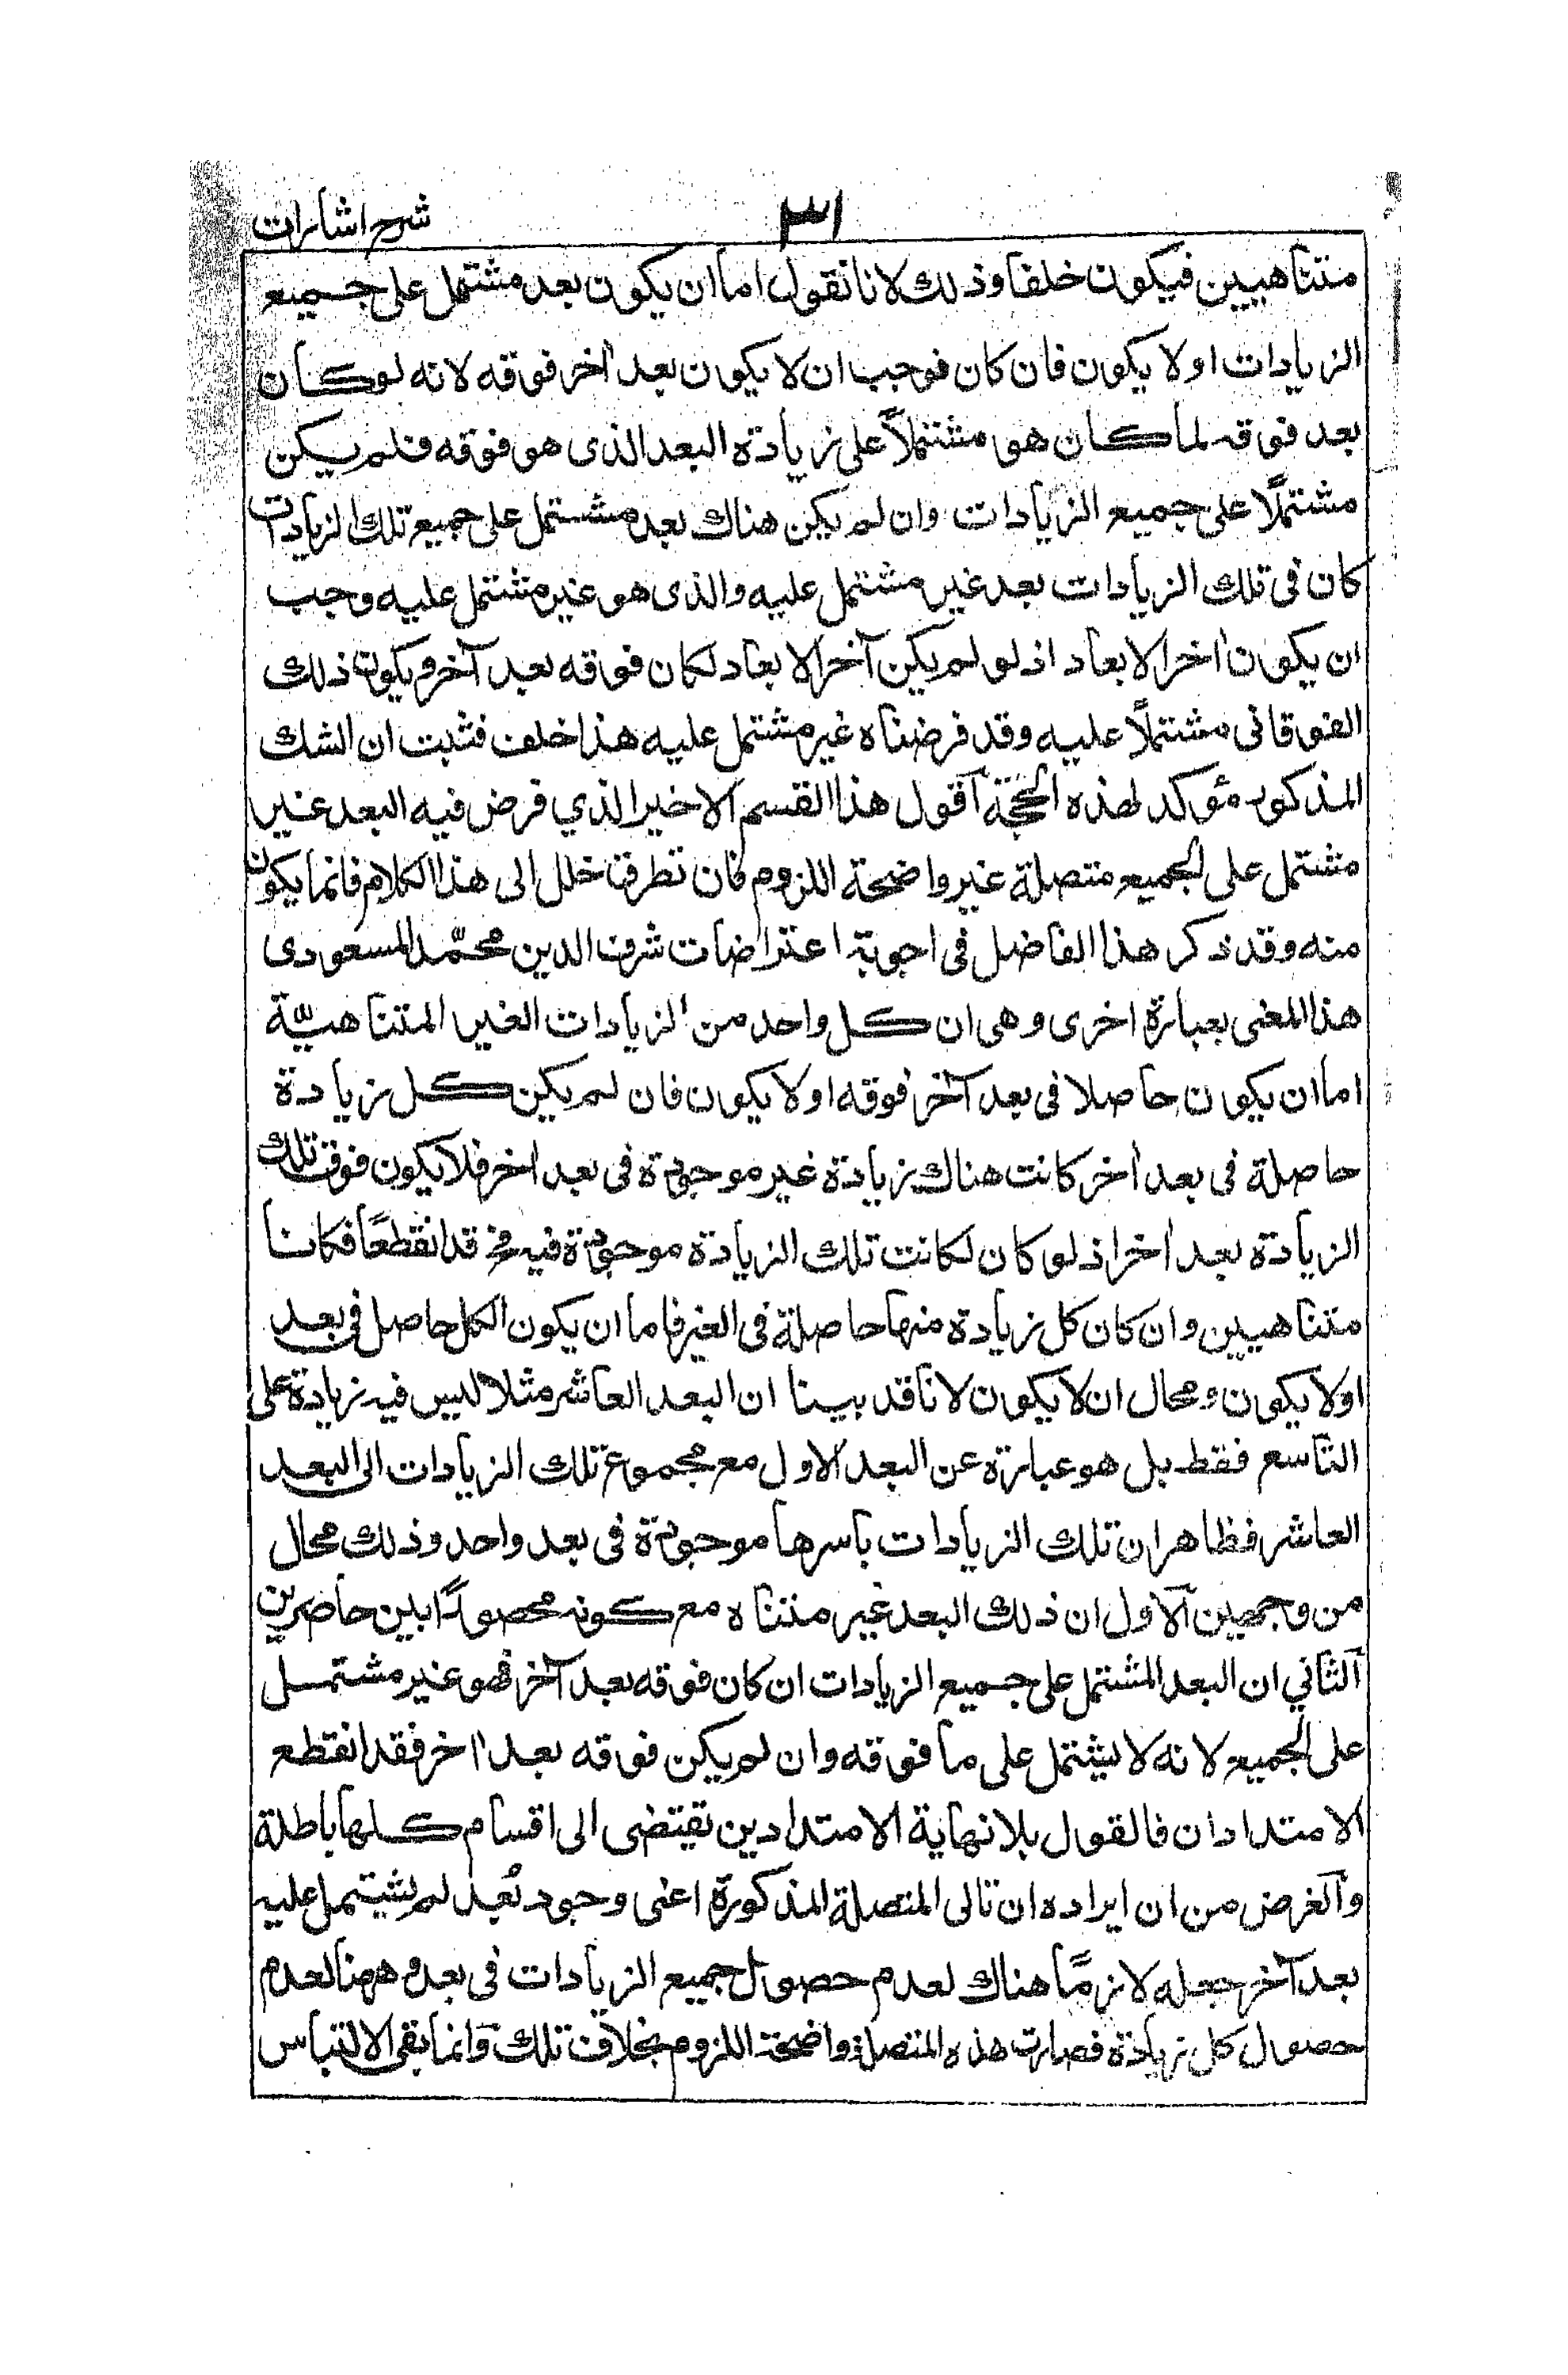 ٣١
شرح اشارات
متناهيين فيكون خلفا وذلك لانا نقول اما ان يكون بعد مشتمل على جميع
الزيادات او لا يكون فان كان فوجب ان لا يكون بعد اخر فوقه لانه لو كان
بعد فوقه لما كان هو مشتملاً على زيادة البعد الذى هو فوقه فلم يكن
مشتملًا على جميع الزيادات وان لم يكن هناك بعد مشتمل على جميع تلك الزيادات
كان فى تلك الزيادات بعد غير مشتمل عليه والذى هو غير مشتمل عليه وجب
ان يكون اخر الابعاد اذ لو لم يكن آخر الابعاد لكان فوقه بعد آخر ويكون ذلك
الفوقانى مشتملًا عليه وقد فرضناه غير مشتمل عليه هذا خلف فثبت ان الشك
المذكور مؤكد لهذه الحجّة آقول هذا القسم الاخير الذي فرض فيه البعد غير
مشتمل على الجميع متصلة غير واضحة اللزوم فان تطرق خلل الى هذا الكلام فانما يكون
منه وقد ذكر هذا الفاضل فى اجوبة اعتراضات شرف الدين محمّد المسعودى
هذا المعنى بعبارة اخرى وهى ان كل واحد من الزيادات الغير المتناهيّة
اما ان يكون حاصلا فى بعد آخر فوقه او لا يكون فان لم يكن كل زيادة
حاصلة فى بعد اخر كانت هناك زيادة غير موجودة فى بعد اخر فلا يكون فوق تلك
الزيادة بعد اخر اذ لو كان لكانت تلك الزيادة موجودة فيه فح قد انقطعًا فكانا
متناهيين وان كان كل زيادة منها حاصلة فى الغير فاما ان يكون الكل حاصل فى بعد
اولا يكون ومحال ان لا يكون لانا قد بينا ان البعد العاشر مثلا ليس فيه زيادة على
التاسع فقط بل هو عبارة عن البعد الاول مع مجموع تلك الزيادات الى البعد
العاشر فظاهر ان تلك الزيادات باسرها موجودة فى بعد واحد وذلك محال
من وجهين آلاول ان ذلك البعد غير متناه مع كونه محصورًا بين حاصرين
آلثاني ان البعد المشتمل على جميع الزيادات ان كان فوقه بعد آخر فهو غير مشتمل
على الجميع لانه لا يشتمل على ما فوقه وان لم يكن فوقه بعد اخر فقد انقطع
الامتدادان فالقول بلا نهاية الامتدادين تقتضى الى اقسام كلها باطلة
وآلغرض من ان ايراده ان تالى المتصلة المذكورة اعنى وجود بُعد لم يشتمل عليه
بعد آخر جعله لازمًا هناك لعدم حصول جميع الزيادات فى بعد وههنا لعدم
حصول كل زيادة فصارت هذه المتصلة واضحة اللزوم بخلاف تلك وآنما بقى الالتباس